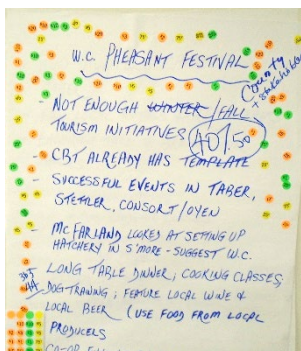 W.C. PHEASANT FESTIVAL
County + Stakeholders
- NOT ENOUGH WINTER/FALL
TOURISM INITIATIVES 40/50
- CBT ALREADY HAS TEMPLATE
- SUCCESSFUL EVENTS IN TABER,
STETTLER, CONSORT/OYEN
- MCFARLAND LOOKED AT SETTING UP
HATCHERY IN S'MORE - SUGGEST W.C.
LONG TABLE DINNER; COOKING CLASSES;
DOG-TRAINING; FEATURE LOCAL WINE &
LOCAL BEER (USE FOOD FROM LOCAL
PRODUCERS